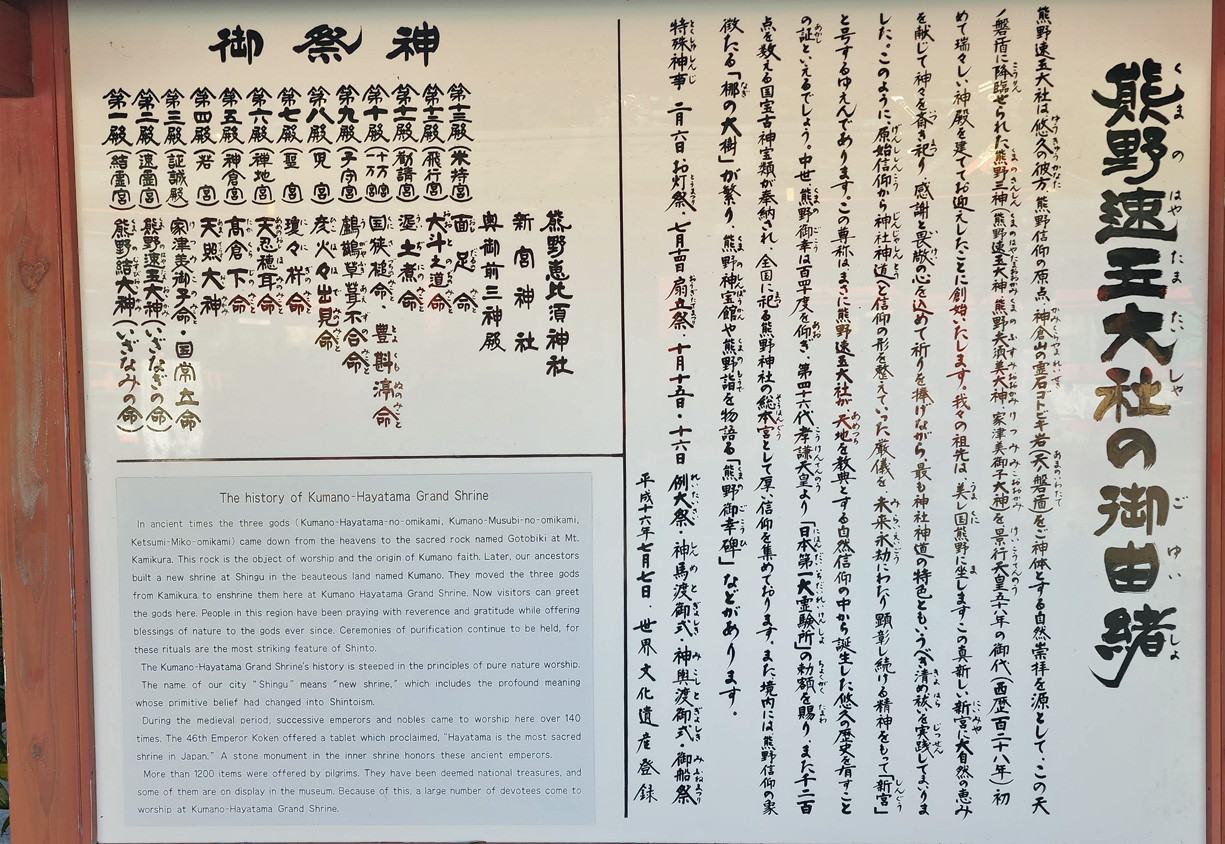 熊野速玉大社の御由緒
熊野速玉大社は悠久の彼方、熊野信仰の原点、神倉山の霊石ゴトビキ岩(天ノ磐盾)をご神体とする自然崇拝を源として、この天
ノ磐盾に降臨せられた熊野三神(熊野速玉大神・熊野夫須美大神・家津美御子大神)を景行天皇五十八年の御代(西歴百二十八年)初
めて瑞々しい神殿を建ててお迎えしたことに創始いたします。我々の祖先は、美し国熊野に坐しますこの真新しい新宮に大自然の恵み
を献じて神々を斎き祀り、感謝と畏敬の心を込めて祈りを捧げながら、最も神社神道の特色ともいうべき清め祓いを実践してまいりま
した。このように、原始信仰から神社神道へと信仰の形を整えていった厳儀を、未来永劫にわたり顕彰し続ける精神をもって「新宮」
と号するゆえんであります。この尊称はまさに熊野速玉大社が、天地を教典とする自然信仰の中から誕生した悠久の歴史を有すこと
の証といえるでしょう。中世、熊野御幸は百四十度を仰ぎ、第四十六代孝謙天皇より「日本第一大霊験所」の勅額を賜り、また千二百
点を数える国宝古神宝類が奉納され、全国に祀る熊野神社の総本宮として厚い信仰を集めております。また境内には熊野信仰の象
徴たる「梛の大樹」が繁り、熊野神宝館や熊野詣を物語る「熊野御幸碑」などがあります。
特殊神事 二月六日お灯祭、七月十四日扇立祭、十月十五日・十六日 例大祭・神馬渡御式・神輿渡御式・御船祭
平成十六年七月七日、世界文化遺産登録
御祭神
第一殿(結霊宮)熊野結大神(いざなみの命)
第二殿(速霊宮)熊野速玉大神(いざなぎの命)
第三殿(証誠殿)家津美御子命・国常立命
第四殿(若宮)天照大神
第五殿(神倉宮)高倉下命
第六殿(禅地宮)天忍穂耳命
第七殿(聖宮)瓊々杵命
第八殿(児宮)彦火々出見命
第九殿(子守宮)鵜鶿草葺不合命
第十殿(十万宮)国狭槌命、豊斟渟命
第十一殿(勧請宮)埿土煮命
第十二殿(飛行宮)大斗之道命
第十三殿(米持宮)面足命
奥御前三神殿
新宮神社
熊野恵比須神社
The history of Kumano-Hayatama Grand Shrine
In ancient times the three gods (Kumano-Hayatama-no-omikami, Kumano-Musubi-no-omikami,
Ketsumi-Miko-omikami) came down from the heavens to the sacred rock named Gotobiki at Mt.
Kamikura. This rock is the object of worship and the origin of Kumano faith. Later, our ancestors
built a new shrine at Shingu in the beauteous land named Kumano. They moved the three gods
from Kamikura to enshrine them here at Kumano Hayatama Grand Shrine. Now visitors can greet
the gods here. People in this region have been praying with reverence and gratitude while offering
blessings of nature to the gods ever since. Ceremonies of purification continue to be held, for
these rituals are the most striking feature of Shinto.
The Kumano-Hayatama Grand Shrine's history is steeped in the principles of pure nature worship.
The name of our city "Shingu" means "new shrine," which includes the profound meaning
whose primitive belief had changed into Shintoism.
During the medieval period, successive emperors and nobles came to worship here over 140
times. The 46th Emperor Koken offered a tablet which proclaimed, "Hayatama is the most sacred
shrine in Japan." A stone monument in the inner shrine honors these ancient emperors.
More than 1200 items were offered by pilgrims. They have been deemed national treasures, and
some of them are on display in the museum. Because of this, a large number of devotees come to
worship at Kumano-Hayatama Grand Shrine.